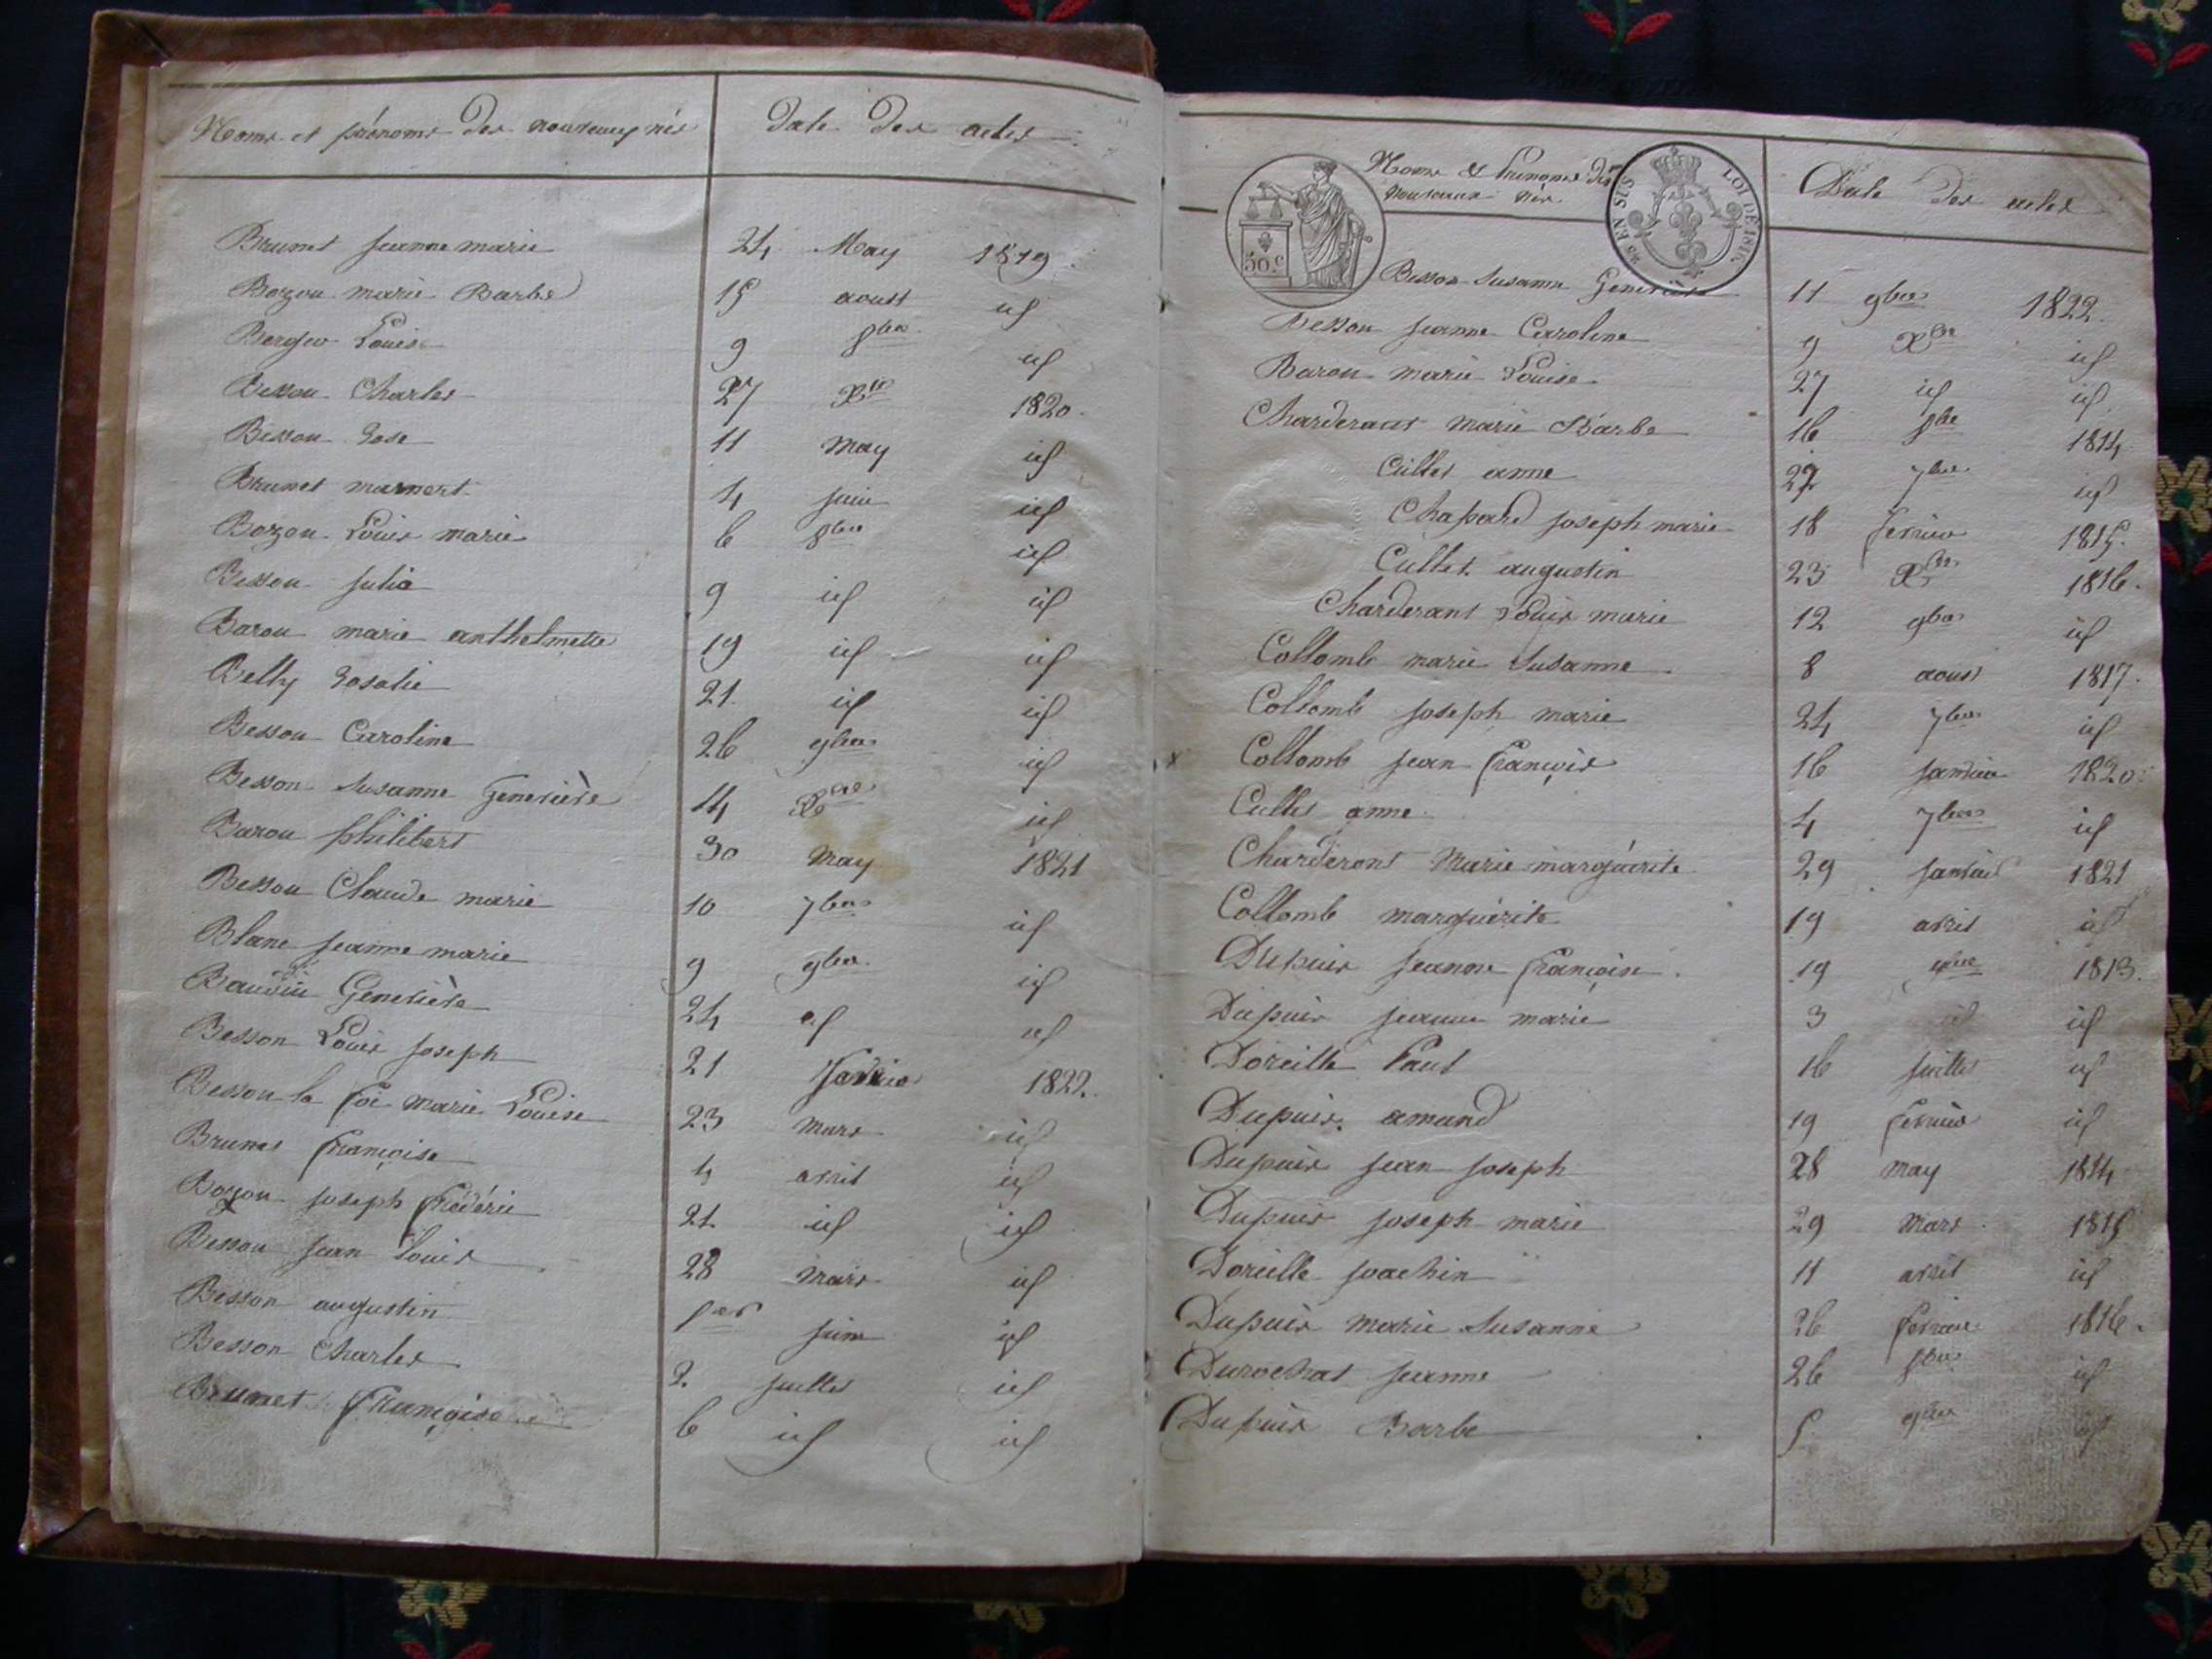 Noms et prénoms des nouveaux nés Date des actes
Brunet jeanne marie 24 May 1819
Bozon marie Barbe 15 aoust id
Berger Louise 9 8bre id
Besson Charles 27 Xbre 1820
Besson Rose 11 May id
Brunet mamert 4 juin id
Bozon Louis marie 6 8bre id
Besson julie 9 id id
Baron marie anthelmette 19 id id
Belly Rosalie 21 id id
Besson Caroline 26 9bre id
Besson Susanne Genevieve 14 Xbre id
Baron philibert 30 May 1821
Besson Claude marie 10 7bre id
Blanc jeanne marie 9 9bre id
Baudin Genevieve 24 id id
Besson Louis joseph 21 Janvier 1822
Besson la foi marie Louise 23 mars id
Brunet françoise 4 avril id
Bozon joseph frédéric 21 id id
Besson jean Louis 28 Mars id
Besson augustin 1er juin id
Besson Charles 2 juillet id
Brunet françoise 6 id id
Noms & Prenoms des
nouveaux nés Date des actes
50 c
EN SUS LOI DE 1816
Besson Susanne Genevieve 11 9bre 1822
Besson jeanne Caroline 9 Xbre id
Baron marie Louise 27 id id
Charderant marie Barbe 16 8bre 1814
Cullet anne 22 7bre id
Chapard joseph marie 18 fevrier 1815
Cullet augustin 23 Xbre 1816
Charderant Louis marie 12 9bre id
Collomb marie Susanne 8 aoust 1817
Collomb joseph marie 24 7bre id
Collomb jean françois 16 janvier 1820
Cullet anne 4 7bre id
Charderont Marie marguérite 29 janvier 1821
Collomb marguérite 19 avril id
Dupuis jeanne françoise 19 1813
Dupuis jeanne marie 3 id id
Doreille Paul 16 juillet id
Dupuis amand 19 fevrier id
Dupuis jean joseph 28 may 1814
Dupuis joseph marie 29 Mars 1815
Doreille joachin 11 avril id
Dupuis marie Susanne 26 fevrier 1816
Durochat jeanne 26 8bre id
Dupuis Barbe 5 9bre id